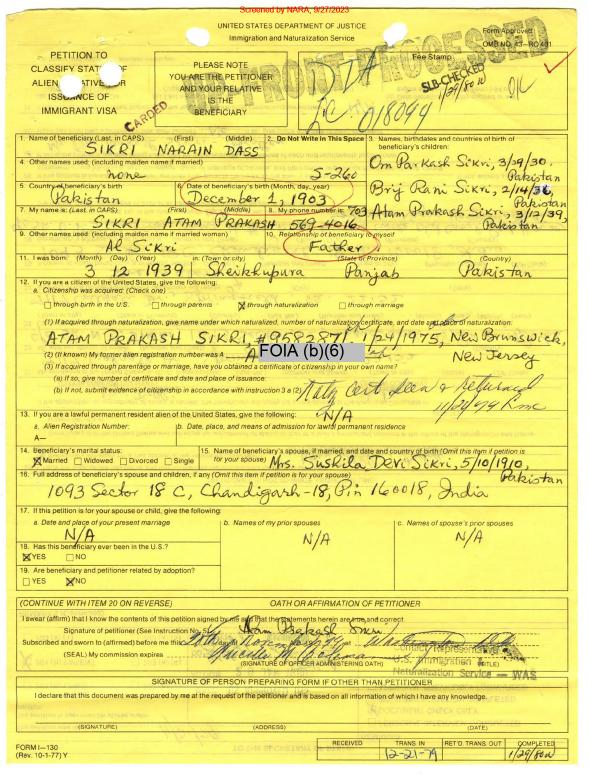 Screened by NARA, 9/27/2023
UNITED STATES DEPARTMENT OF JUSTICE
Immigration and Naturalization Service
Form Approved
OMB NO. 43-RO 401
PETITION TO CLASSIFY STATUS OF ALIEN RELATIVE FOR ISSUANCE OF IMMIGRANT VISA
PLEASE NOTE
YOU ARE THE PETITIONER
AND YOUR RELATIVE
IS THE
BENEFICIARY
Fee Stamp
SLB-CHECKED
1/29/80
018099
CARDED
1. Name of beneficiary (Last, in CAPS) (First) (Middle)
SIKRI NARAIN DASS
2. Do Not Write in This Space
5-260
3. Names, birthdates and countries of birth of beneficiary's children:
Om Parkash Sikri, 3/29/30, Pakistan
Brij Rani Sikri, 2/14/36, Pakistan
Atam Prakash Sikri, 3/12/39, Pakistan
4. Other names used: (including maiden name if married)
none
5. Country of beneficiary's birth
Pakistan
6. Date of beneficiary's birth (Month, day, year)
December 1, 1903
7. My name is: (Last, in CAPS) (First) (Middle)
SIKRI ATAM PRAKASH
8. My phone number is:
703
569-4016
9. Other names used: (including maiden name if married woman)
Al Sikri
10. Relationship of beneficiary to myself
Father
11. I was born: (Month) (Day) (Year) in: (Town or city) (State or Province) (Country)
3 12 1939 Sheikhupura Panjab Pakistan
12. If you are a citizen of the United States, give the following:
a. Citizenship was acquired: (Check one)
through birth in the U.S. through parents X through naturalization through marriage
(1) If acquired through naturalization, give name under which naturalized, number of naturalization certificate, and date and place of naturalization:
ATAM PRAKASH SIKRI, #9582871, 1/24/1975, New Brunswick, New Jersey
(2) (If known) My former alien registration number was A
FOIA (b)(6)
(3) If acquired through parentage or marriage, have you obtained a certificate of citizenship in your own name?
(a) If so, give number of certificate and date and place of issuance:
(b) If not, submit evidence of citizenship in accordance with instruction 3 a (2)
Natz Cert Seen & Returned
13. If you are a lawful permanent resident alien of the United States, give the following:
N/A
a. Alien Registration Number:
A—
b. Date, place, and means of admission for lawful permanent residence
14. Beneficiary's marital status:
X Married Widowed Divorced Single
15. Name of beneficiary's spouse, if married, and date and country of birth (Omit this item if petition is for your spouse)
Mrs. Sushila Devi Sikri, 5/10/1910, Pakistan
16. Full address of beneficiary's spouse and children, if any (Omit this item if petition is for your spouse)
1093 Sector 18 C, Chandigarh-18, Pin 160018, India
17. If this petition is for your spouse or child, give the following:
a. Date and place of your present marriage
N/A
b. Names of my prior spouses
N/A
c. Names of spouse's prior spouses
N/A
18. Has this beneficiary ever been in the U.S.?
X YES NO
19. Are beneficiary and petitioner related by adoption?
YES X NO
(CONTINUE WITH ITEM 20 ON REVERSE) OATH OR AFFIRMATION OF PETITIONER
I swear (affirm) that I know the contents of this petition signed by me and that the statements herein are true and correct.
Signature of petitioner (See Instruction No. 5)
Atam Prakash Sikri
Subscribed and sworn to (affirmed) before me this
(SEAL) My commission expires
(SIGNATURE OF OFFICER ADMINISTERING OATH) (TITLE)
Contact Representative
U.S. Immigration &
Naturalization Service — WAS
SIGNATURE OF PERSON PREPARING FORM IF OTHER THAN PETITIONER
I declare that this document was prepared by me at the request of the petitioner and is based on all information of which I have any knowledge.
(SIGNATURE) (ADDRESS) (DATE)
FORM I—130
(Rev. 10-1-77) Y
RECEIVED
TRANS. IN
12-21-79
RET'D. TRANS. OUT
COMPLETED
1/29/80